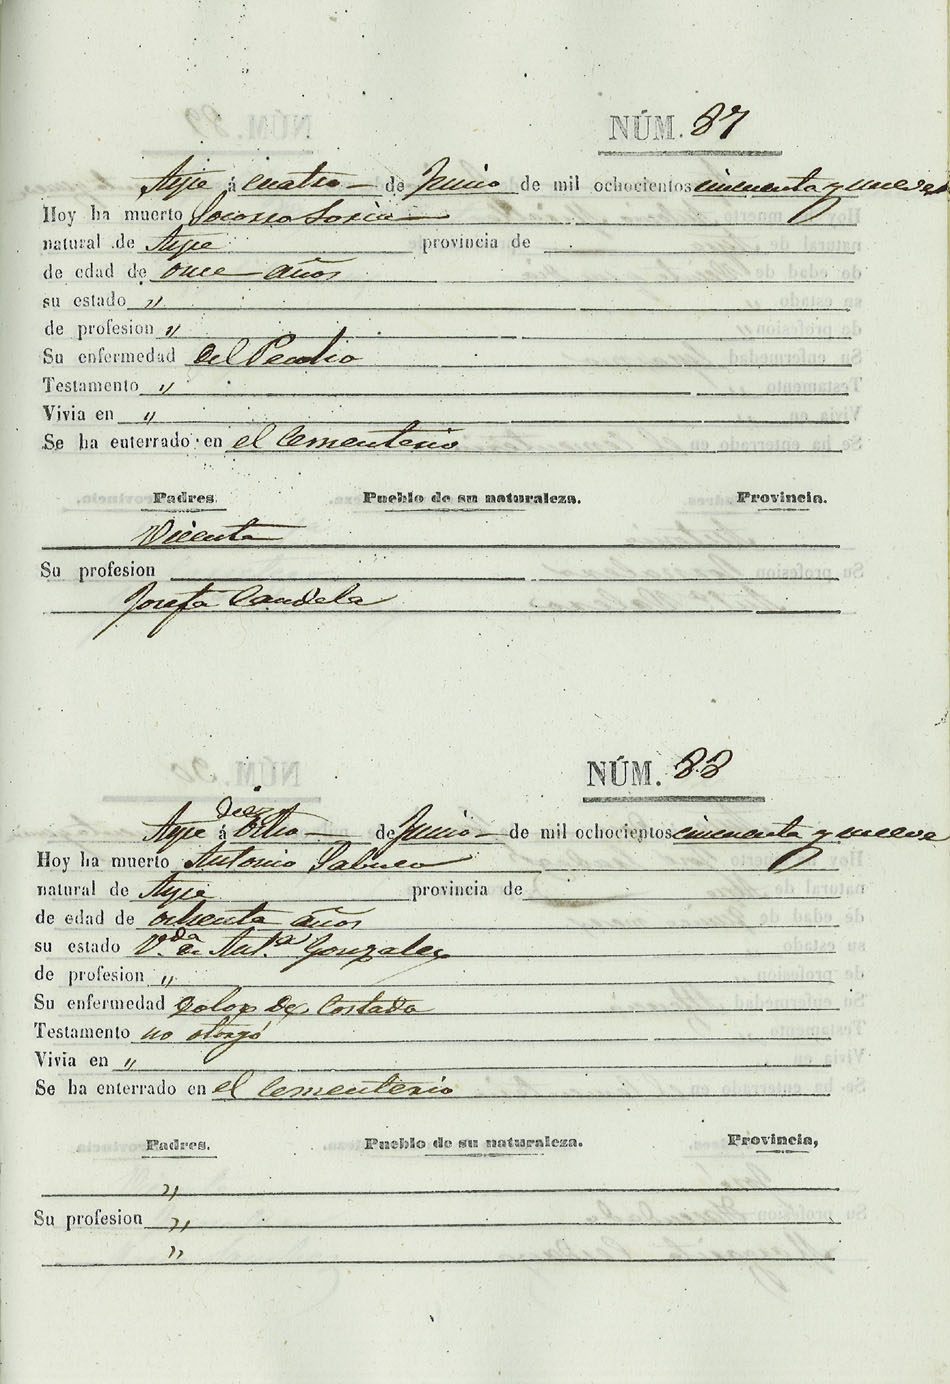 NÚM. 87
Aspe á cuatro de Junio de mil ochocientos cincuenta y nueve
Hoy ha muerto Socorro Soria
natural de Aspe provincia de
de edad de once años
su estado "
de profesion "
Su enfermedad del Pecho
Testamento "
Vivia en "
Se ha enterrado en el Cementerio
Padres. Pueblo de su naturaleza. Provincia.
Vicente
Su profesion
Josefa Candela
NÚM. 88
diez y
Aspe á ocho de Junio de mil ochocientos cincuenta y nueve
Hoy ha muerto Antonio
natural de Aspe provincia de
de edad de ochenta años
su estado V.do de Ant.a Gonzalez
de profesion "
Su enfermedad Dolor de Costado
Testamento no otorgó
Vivia en "
Se ha enterrado en el Cementerio
Padres. Pueblo de su naturaleza. Provincia,
"
Su profesion "
"